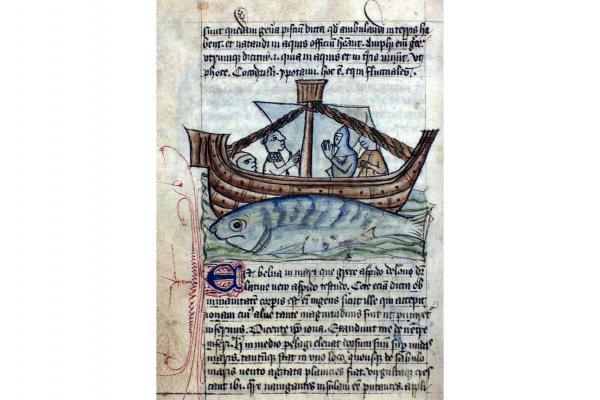 sunt quedam gen̄a pisciū dicta qđ ambulandi in terris ha
bent. et natandi in aquis officiū hēant. Amphi em̄
dicitur. i. quia in aquis et in tr̄is uiuūt. ut
phoce. Cocodrilli. ypotami. hoc ē. equi fluctuales.
Est belua in mari que grece aspido delone dr̄
latine vero aspido testudo. Cete eciā dicta ob
inmanitatem corpis est em̄ ingens sicut ille qui accepit
ionam cuiꝰ aluꝰ tante magnitudinis fuit ut putaret
infernus. Dicente ip̄o iona. Exaudiuit me de uentre
inferi. in medio pelagi eleuat dorsum suū sup undas
maris. stat in uno loco. quousque de sabulo
maris uento agitata planicies fiat. cres
cant ibi. nauigantes insulam eē putantes. appli